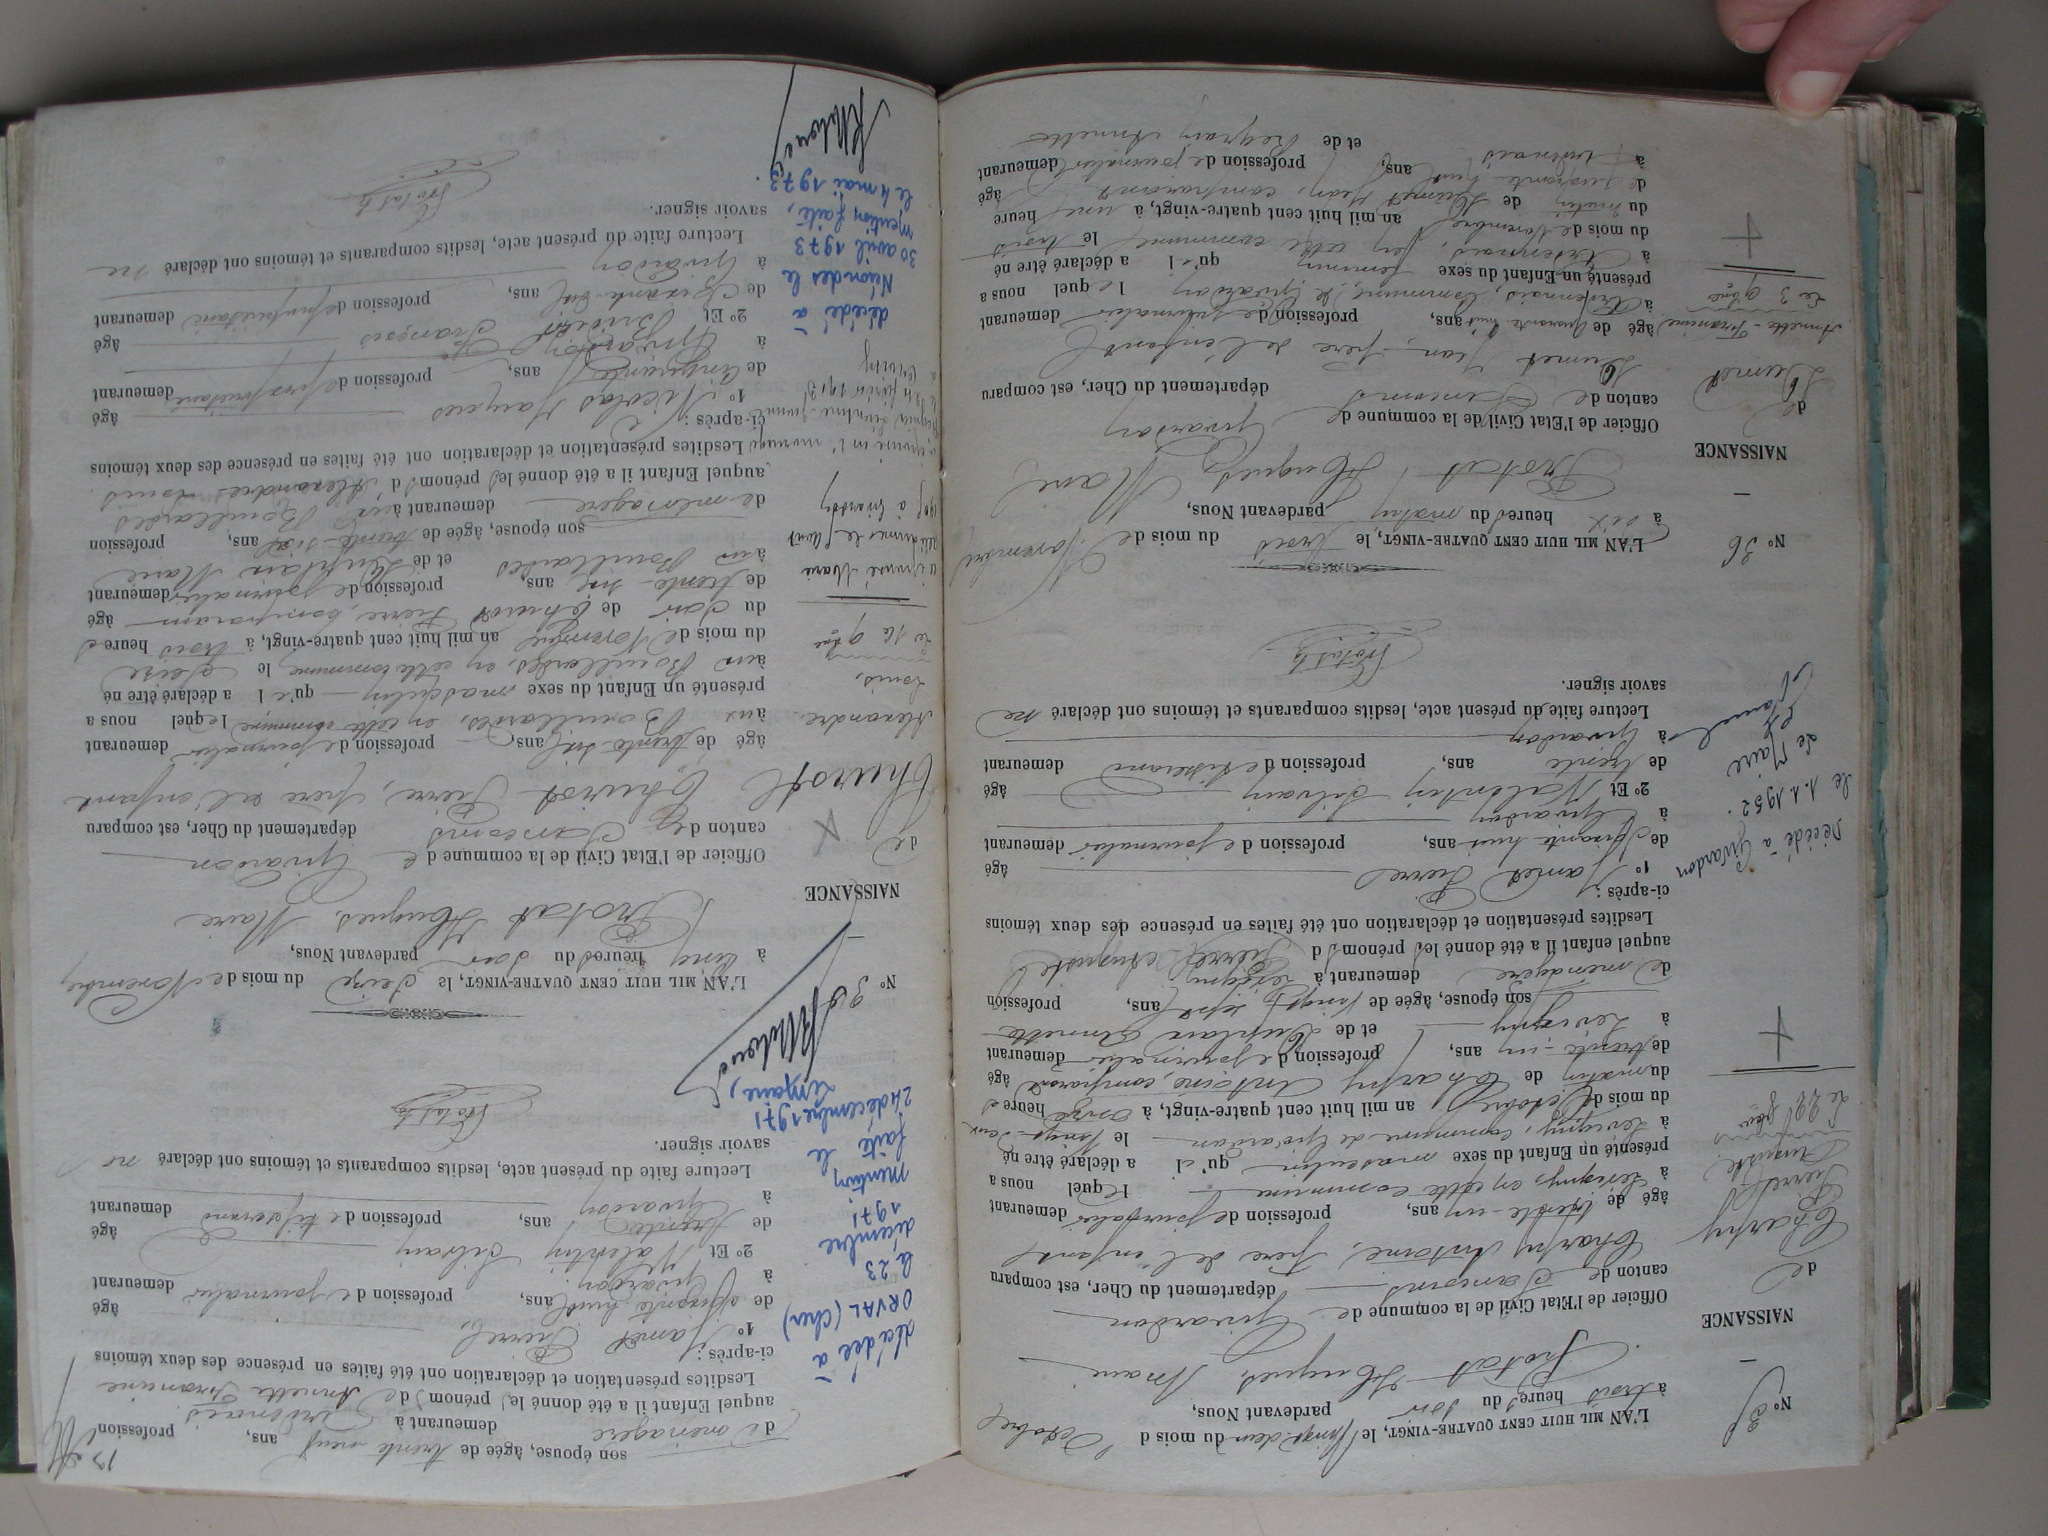 N° 35
NAISSANCE
de
Charpy
Pierre
Auguste.
Le 22 8bre
Décédé à Givardon
le 1.1.1952.
Le Maire
L'AN MIL HUIT CENT QUATRE-VINGT, le Vingt-deux du mois d'Octobre
à trois heures du soir pardevant Nous,
Protat Hugues, Maire
Officier de l'Etat Civil de la commune de Givardon
canton de Sancoins département du Cher, est comparu
Charpy Antoine, père de l'enfant
âgé de trente-un ans, profession de journalier demeurant
à Lévigny, en cette commune lequel nous a
présenté un Enfant du sexe masculin qu'il a déclaré être né
à Lévigny, commune de Givardon le Vingt-deux
du mois d'Octobre, an mil huit cent quatre-vingt, à onze heures
du matin de Charpy Antoine, comparant âgé
de trente-un ans, profession de journalier demeurant
à Lévigny et de Duplaix Annette
son épouse, âgée de Vingt sept ans, profession
de ménagère demeurant à Lévigny
auquel enfant il a été donné les prénoms d Pierre Auguste
Lesdites présentation et déclaration ont été faites en présence des deux témoins
ci-après :
1° Jamet Pierre âgé
de soixante huit ans, profession de journalier demeurant
à Givardon
2° Et Valentin Silvain âgé
de trente ans, profession de tisserand demeurant
à Givardon
Lecture faite du présent acte, lesdits comparants et témoins ont déclaré ne
savoir signer.
Protat h
N° 36
NAISSANCE
de
Dumet
Annette-Francine
Le 3 9bre
L'AN MIL HUIT CENT QUATRE-VINGT, le trois du mois de Novembre
à dix heures du matin pardevant Nous,
Protat Hugues, Maire,
Officier de l'Etat Civil de la commune Givardon
canton de Sancoins département du Cher, est comparu
Dumet Jean, père de l'enfant
âgé de quarante huit ans, profession de journalier demeurant
à Ardennais, commune de Givardon lequel nous a
présenté un Enfant du sexe féminin qu'il a déclaré être né
à Ardennais, en cette commune le trois
du mois de Novembre an mil huit cent quatre-vingt, à une heure
du matin de Dumet Jean, comparant âgé
de quarante huit ans, profession de journalier demeurant
à Ardennais et de Annette
son épouse, âgée de trente neuf ans, profession
de ménagère demeurant à Ardennais
auquel Enfant il a été donné les prénoms de Annette Francine
Lesdites présentation et déclaration ont été faites en présence des deux témoins
ci-après :
1° Jamet Pierre âgé
de soixante huit ans, profession de journalier demeurant
à Givardon
2° Et Valentin Silvain âgé
de trente ans, profession de tisserand demeurant
à Givardon
Lecture faite du présent acte, lesdits comparants et témoins ont déclaré ne
savoir signer.
Protat h
décédée à
ORVAL (Cher)
le 23
décembre
1971
mention
faite le
24 décembre 1971
Le Maire,
NAISSANCE
de
Theurot
Alexandre
Louis,
Le 16 9bre
L'AN MIL HUIT CENT QUATRE-VINGT, le Seize du mois de Novembre
à cinq heures du soir pardevant Nous,
Protat Hugues, Maire
Officier de l'Etat Civil de la commune de Givardon
canton de Sancoins département du Cher, est comparu
Theurot Pierre, père de l'enfant
âgé de trente-six ans, profession de journalier demeurant
aux Bouillardes, en cette commune lequel nous a
présenté un Enfant du sexe masculin qu'il a déclaré être né
aux Bouillardes, en cette commune le Seize
du mois de Novembre an mil huit cent quatre-vingt, à trois heures
du soir de Theurot Pierre, comparant âgé
de trente-six ans, profession de journalier demeurant
aux Bouillardes et de Duplaix Marie
son épouse, âgée de trente-six ans, profession
de ménagère demeurant aux Bouillardes
auquel Enfant il a été donné les prénoms d'Alexandre Louis.
Lesdites présentation et déclaration ont été faites en présence des deux témoins
ci-après :
1° Nicolas âgé
de Cinquante ans, profession de propriétaire demeurant
à Givardon
2° Et François âgé
de Soixante ans, profession de propriétaire demeurant
à Givardon
Lecture faite du présent acte, lesdits comparants et témoins ont déclaré ne
savoir signer.
Protat h
décédé à
Néron des le
30 avril 1973
mention faite,
le 4 mai 1973.